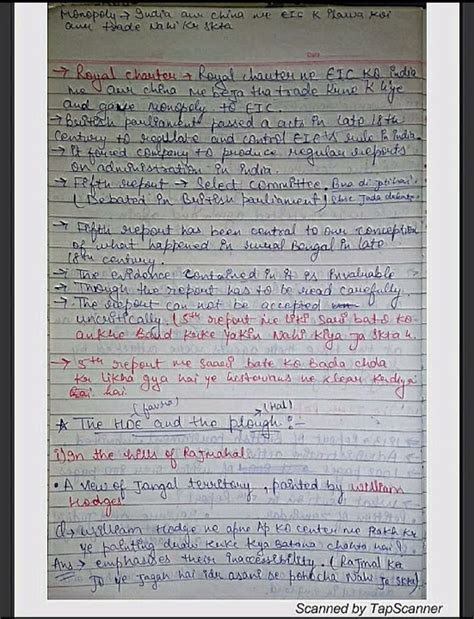 Monopoly → India aur China me EIC K ilawa koi
aur trade Nahi kr skta
→ Royal charter → Royal charter ne EIC KO India
me aur china me beja tha trade krne K liye
and gave monopoly to EIC.
→ British parliament passed a acts in late 18th
century to regulate and control EIC's rule in India.
→ It forced company to produce regular reports
on administration in India.
→ Fifth report → Select committee. Bna di jati hai.
(Debated in British parliament)
→ Fifth report has been central to our conception
of what happened in rural Bengal in late
18th century.
→ The evidence contained in it is invaluable
→ Through the report has to be read carefully.
→ The report can not be accepted
uncritically. (5th report me likhi sari bato ko
ankhe band krke yakin Nahi kiya ja skta h.
→ 5th report me saari bate ko bada chda
kr likha gya hai ye historians ne clear krdya
hai.
(Hal)
★ The HOE and the plough :-
i) In the hills of Rajmahal
• A view of Jangal territory, painted by William
Hodges
Q) William Hodge ne apne Ap ko center me Rakh kr
ye painting draw krke kya batana chahta hai?
Ans → emphasises their inaccessibility. (Rajmal ka
jo ye jagah hai idr asani se pohocha Nahi ja skta)
Scanned by TapScanner